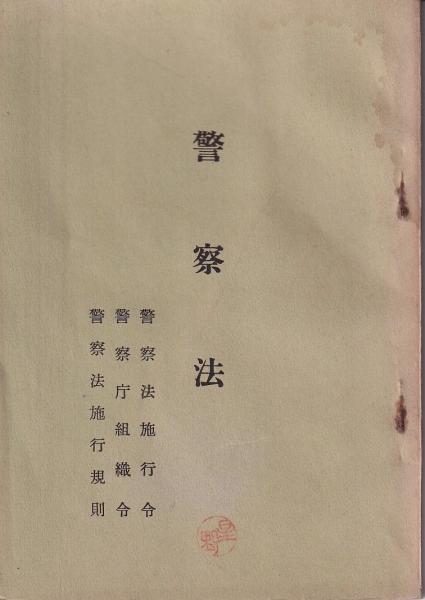 警察法
警察法施行令
警察庁組織令
警察法施行規則